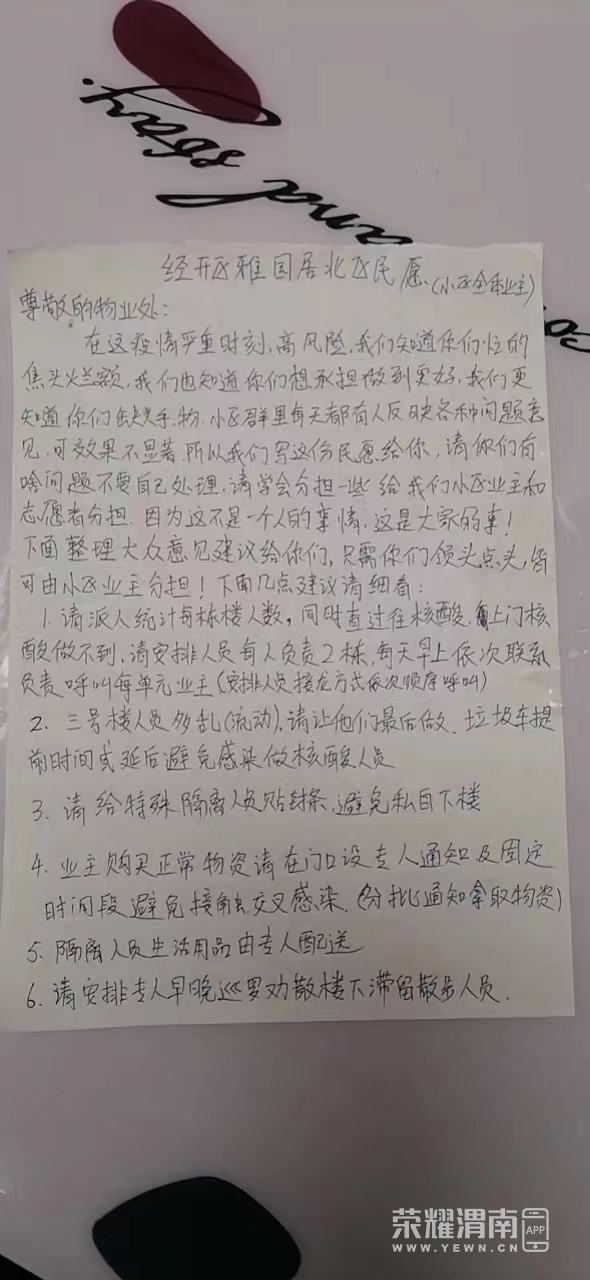 story.
and
经开区雅园居北区民愿.(小区全体业主)
尊敬的物业处:
在这疫情严重时刻,高风险,我们知道你们忙的
焦头烂额,我们也知道你们想承担做到更好,我们更
知道你们缺人手.物.小区群里每天都有人反映各种问题意
见.可效果不显著.所以我们写这份民愿给你,请你们有
啥问题不要自己处理.请学会分担一些给我们小区业主和
志愿者分担.因为这不是一个人的事情.这是大家的事!
下面整理大众意见建议给你们,只需你们领头点头,皆
可由小区业主分担!下面几点建议请细看:
1.请派人统计每栋楼人数,同时直过往核酸,上门核
酸做不到.请安排人员每人负责2栋,每天早上依次联系
负责呼叫每单元业主(安排人员接龙方式依次顺序呼叫)
2.三号楼人员多乱(流动),请让他们最后做.垃圾车提
前时间或延后避免感染做核酸人员
3.请给特殊隔离人员贴封条,避免私自下楼
4.业主购买正常物资请在门口设专人通知及固定
时间段避免接触交叉感染.(分批通知拿取物资)
5.隔离人员生活用品由专人配送
6.请安排专人早晚巡罗劝散楼下滞留散步人员.
荣耀渭南APP
WWW.YEWN.CN